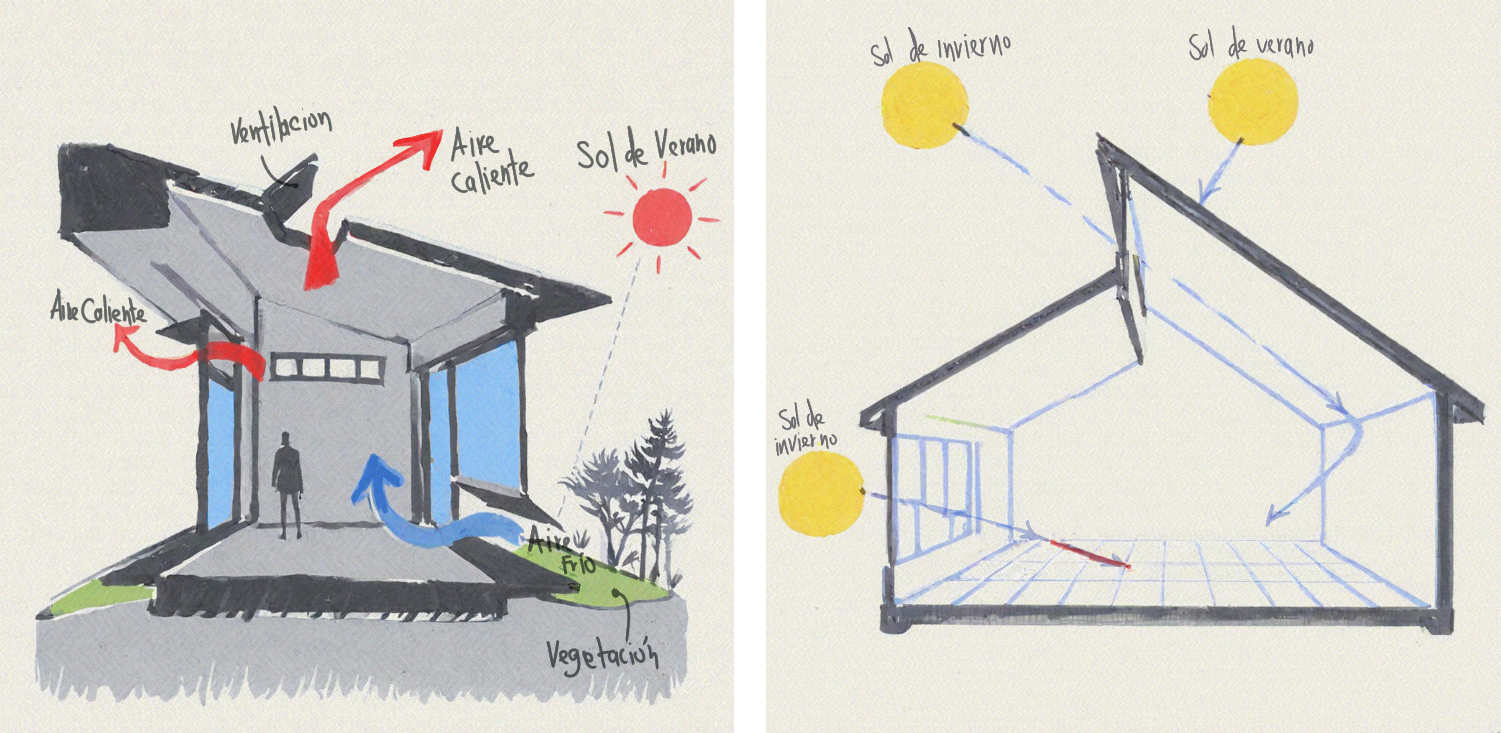 Ventilacion
Aire
Caliente
Sol de Verano
Aire Caliente
Aire
Frío
Vegetación
Sol de invierno
Sol de verano
Sol de
invierno